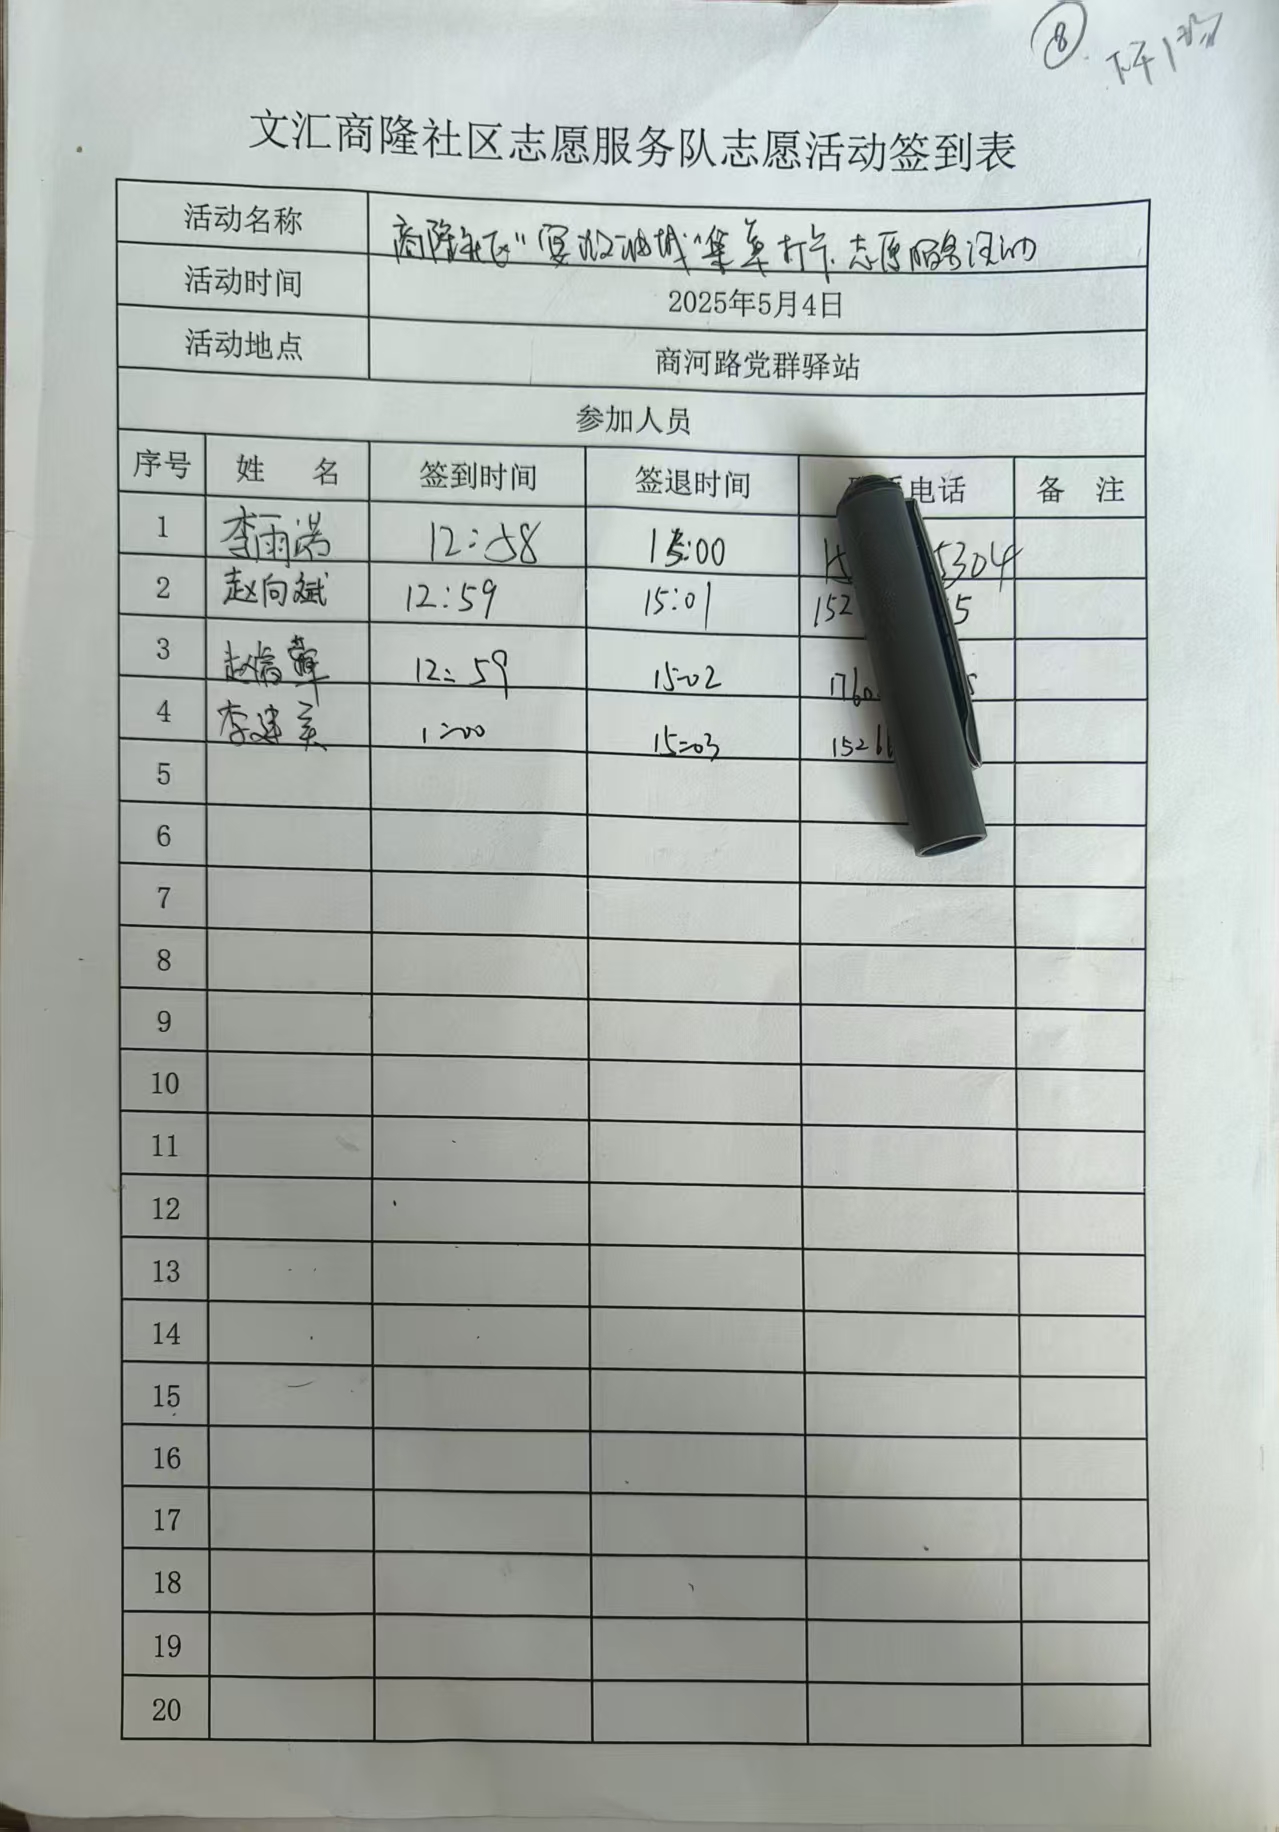 ⑧
下午1
文汇商隆社区志愿服务队志愿活动签到表
活动名称 商隆社区"宴汝油城"集章打卡志愿服务活动
活动时间 2025年5月4日
活动地点 商河路党群驿站
参加人员
序号 姓 名 签到时间 签退时间 电话 备 注
1 李雨 12:58 15:00 15 5304
2 赵向斌 12:59 15:01 152 5
3 赵 12:59 15:02 176 5
4 李建英 1:00 15:03 1526
5
6
7
8
9
10
11
12
13
14
15
16
17
18
19
20